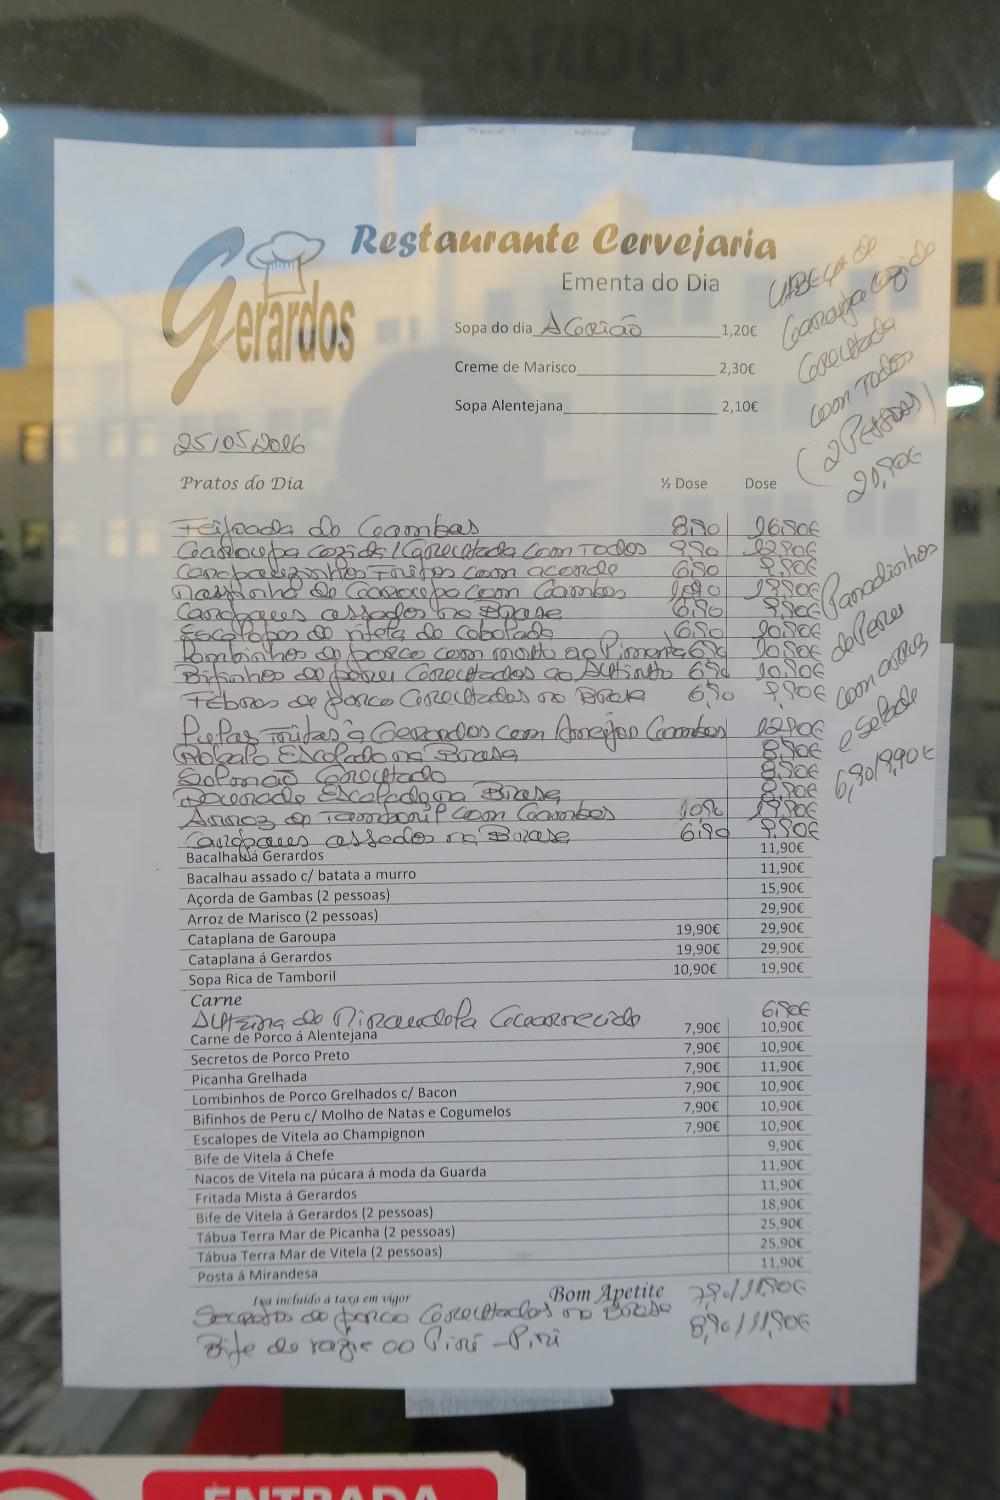 Gerardos
Restaurante Cervejaria
Ementa do Dia
Sopa do dia Agrião 1,20€
Creme de Marisco 2,30€
Sopa Alentejana 2,10€
CABEÇA de
Garoupa cozida
Grelhada
com Todos
(2 PESSOAS)
21,90€
25/05/2016
Pratos do Dia ½ Dose Dose
Feijoada de Gambas 8,90 16,90€
Garoupa cozida/Grelhada com Todos 9,90 12,90€
Carapauzinhos Fritos com açorda 6,90 9,90€
Massinha de Garoupa com Gambas 10,90 19,90€
Carapaus assados na Brasa 6,90 9,90€
Escalopes de vitela de cebolada 6,90 10,90€
Lombinhos de porco com molho ao Pimenta 6,90 10,90€
Bifinhos de peru Grelhados ao Alhinho 6,90 10,90€
Febras de porco Grelhados na Brasa 6,90 9,90€
Panadinhos
de Peru
com arroz
e Salada
6,90/9,90€
Lulas Fritas à Gerardos com Ameijoas Gambas 12,90€
Robalo Escalado na Brasa 8,90€
Salmão Grelhado 8,90€
Dourada Escalada na Brasa 8,90€
Arroz de Tamboril com Gambas 10,90 19,90€
Carapaus assados na Brasa 6,90 9,90€
Bacalhau á Gerardos 11,90€
Bacalhau assado c/ batata a murro 11,90€
Açorda de Gambas (2 pessoas) 15,90€
Arroz de Marisco (2 pessoas) 29,90€
Cataplana de Garoupa 19,90€ 29,90€
Cataplana á Gerardos 19,90€ 29,90€
Sopa Rica de Tamboril 10,90€ 19,90€
Carne
Alheira de Mirandela Guarnecida 6,90€
Carne de Porco á Alentejana 7,90€ 10,90€
Secretos de Porco Preto 7,90€ 10,90€
Picanha Grelhada 7,90€ 11,90€
Lombinhos de Porco Grelhados c/ Bacon 7,90€ 10,90€
Bifinhos de Peru c/ Molho de Natas e Cogumelos 7,90€ 10,90€
Escalopes de Vitela ao Champignon 7,90€ 10,90€
Bife de Vitela á Chefe 9,90€
Nacos de Vitela na púcara á moda da Guarda 11,90€
Fritada Mista á Gerardos 11,90€
Bife de Vitela á Gerardos (2 pessoas) 18,90€
Tábua Terra Mar de Picanha (2 pessoas) 25,90€
Tábua Terra Mar de Vitela (2 pessoas) 25,90€
Posta á Mirandesa 11,90€
Iva incluído à taxa em vigor Bom Apetite
Secretos de porco Grelhados na Brasa 7,90/11,90€
Bife de vazia ao Piri-Piri 8,90/11,90€
ENTRADA